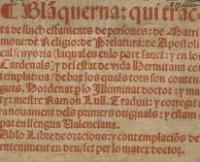 Blãquerna: qui tracta
ta de sinch estaments de persones: de Matri
moni: de Religio: de Prelatura: de Apostoli
cal senyoria (laqual es en lo pare sanct: y en los
Cardenals) y del estat de vida Hermitana co
templatiua: de hont los quals tots son conten
guts. Hordenat p lo Illuminat doctor: y mar
tyr mestre Ramon Lull. Traduit: y corregit
a nouament dels primers originals: y estam
pat en llengua Valenciana.
Ab lo Libre de oracions: y contemplaciõs del
enteniment en deu, fet per lo mateix doctor.